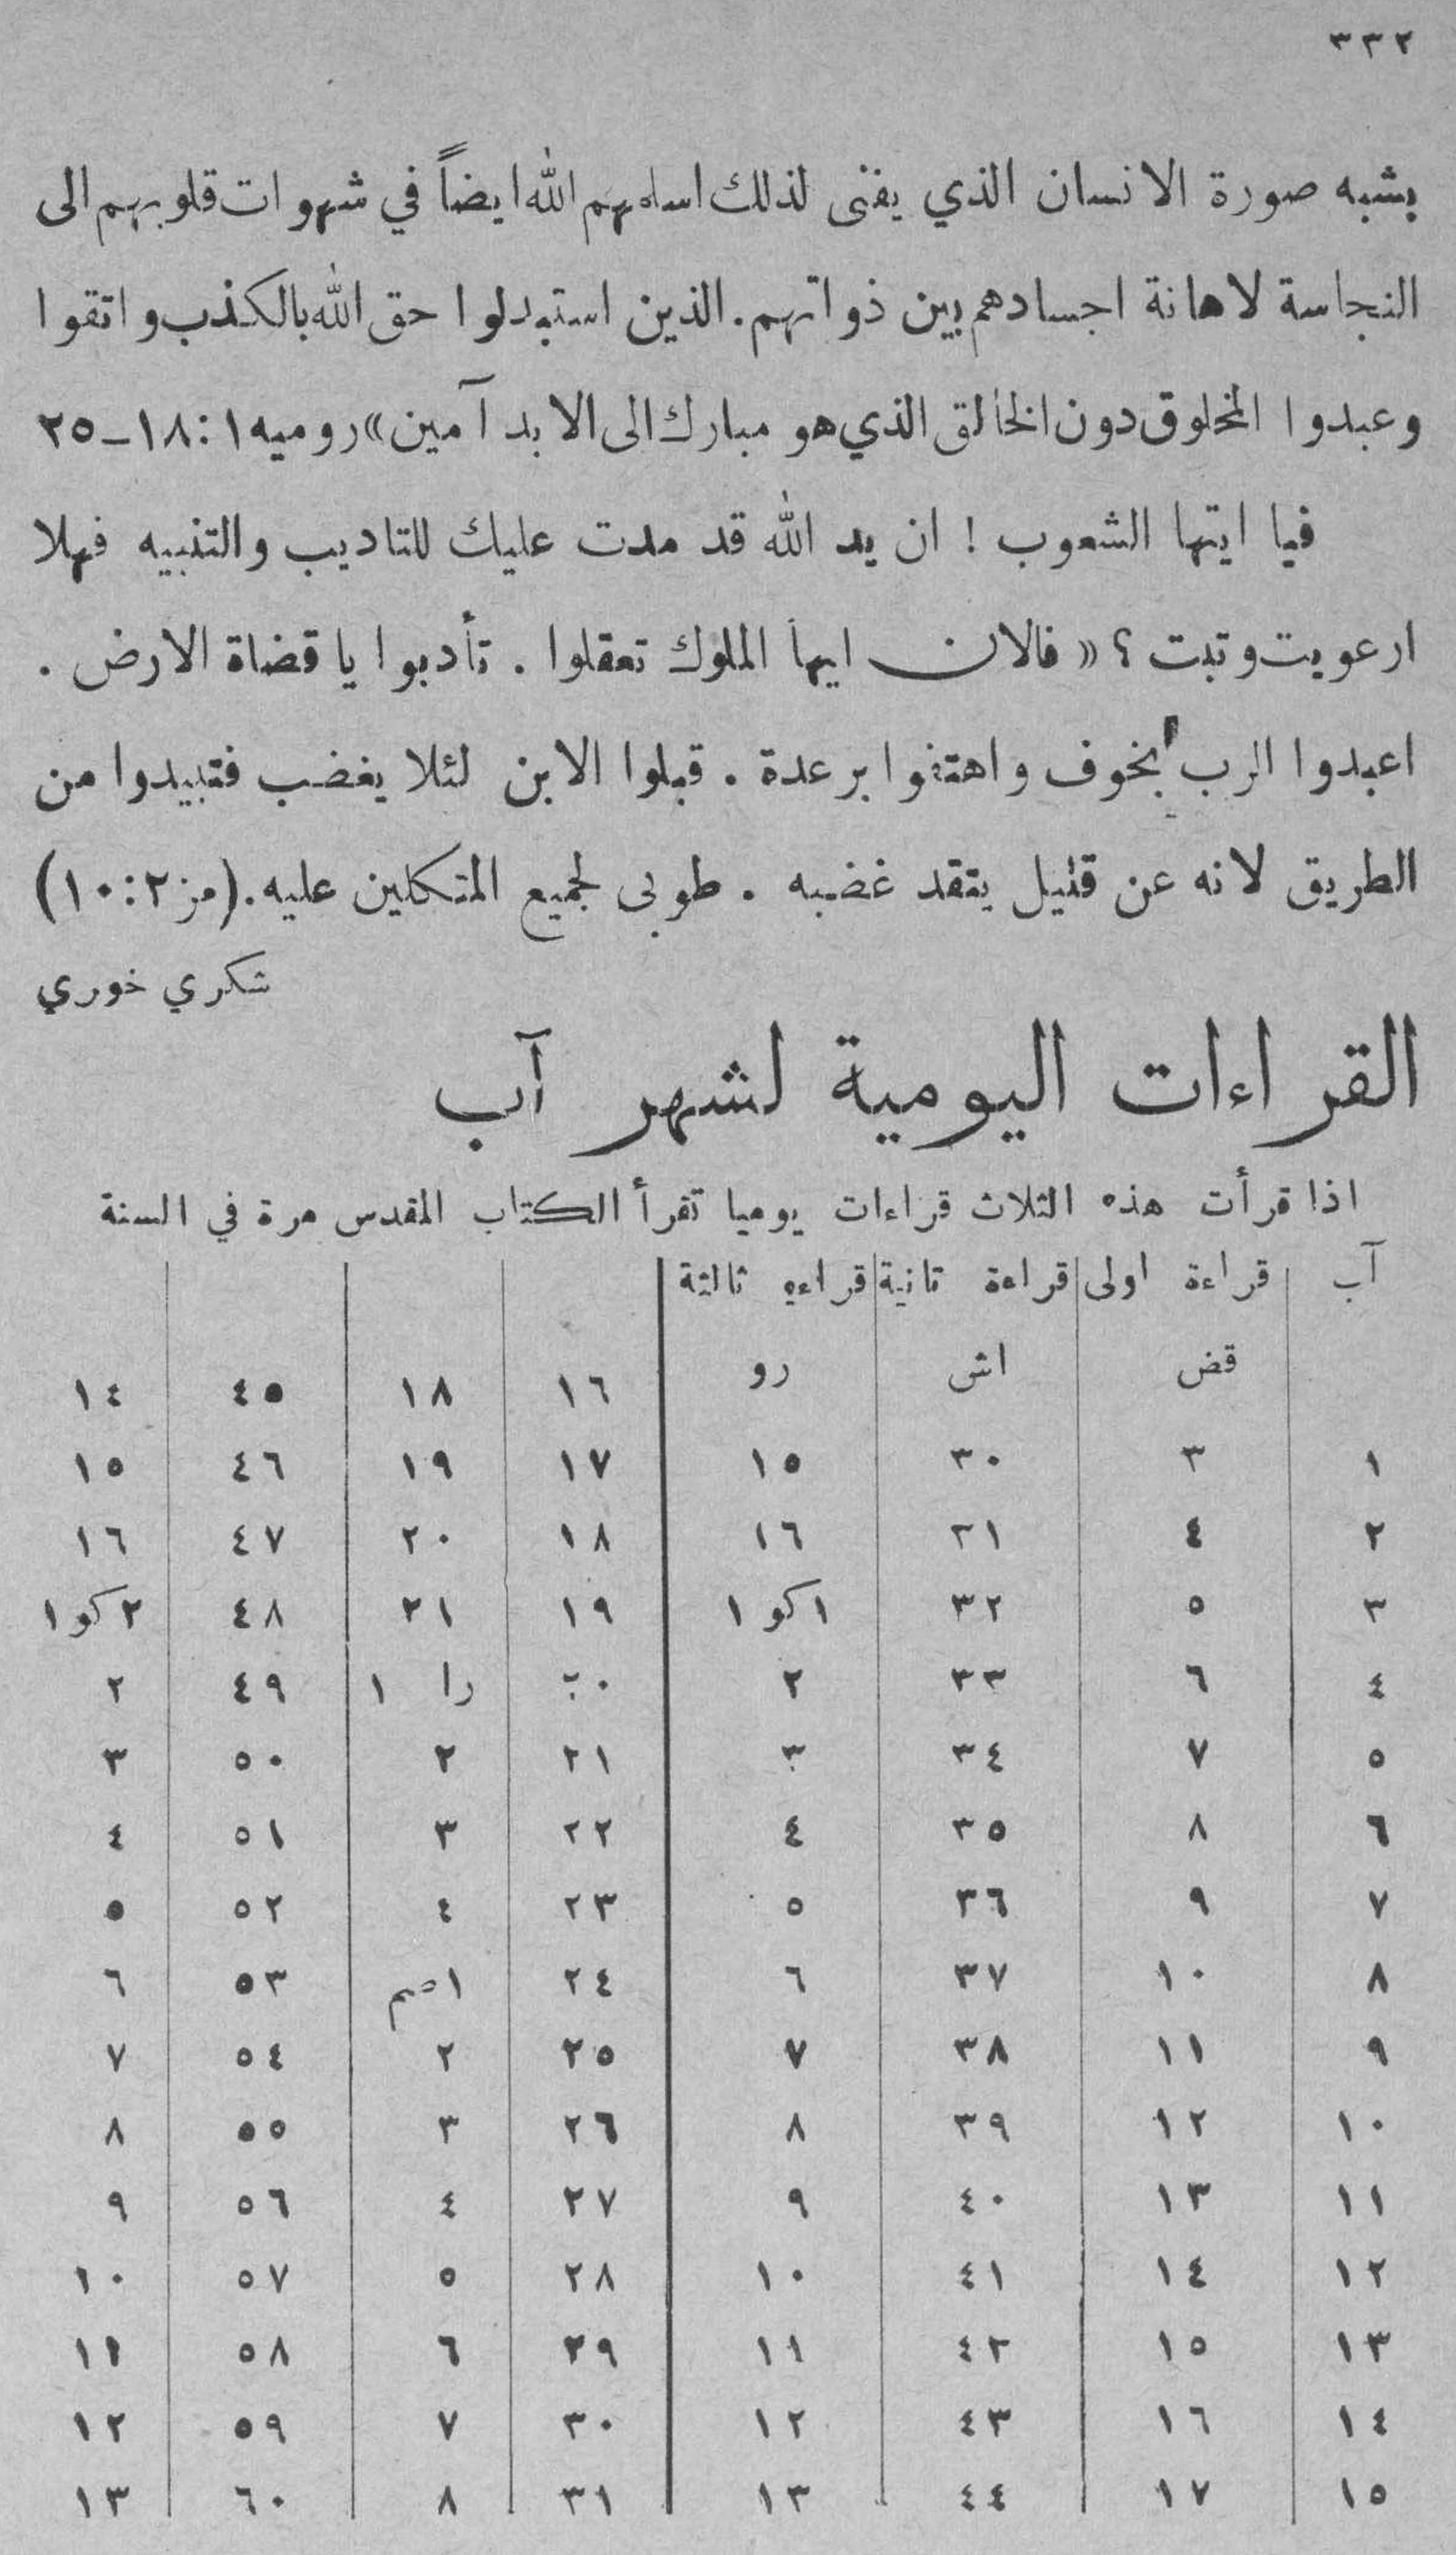 ٣٣٢
يشبه صورة الانسان الذي يفنى لذلك اسلمهم الله ايضاً في شهوات قلوبهم الى
النجاسة لاهانة اجسادهم بين ذواتهم. الذين استبدلوا حق الله بالكذب واتقوا
وعبدوا المخلوق دون الخالق الذي هو مبارك الى الابد آمين» روميه ١ : ١٨ــ٢٥
فيا ايتها الشعوب ! ان يد الله قد مدت عليك للتاديب والتنبيه فهلا
ارعويت وتبت ؟ «فالان ايها الملوك تعقلوا . تأدبوا يا قضاة الارض .
اعبدوا الرب بخوف واهتفوا برعدة . قبلوا الابن لئلا يغضب فتبيدوا من
الطريق لانه عن قليل يتقد غضبه . طوبى لجميع المتكلين عليه. (مز ٢ : ١٠)
شكري خوري
القراءات اليومية لشهر آب
اذا قرأت هذه الثلاث قراءات يوميا تقرأ الكتاب المقدس مرة في السنة
آب قراءة اولى قراءة ثانية قراءة ثالثة
قض اش رو
١ ٣ ٣٠ ١٥
٢ ٤ ٣١ ١٦
٣ ٥ ٣٢ ١ كو ١
٤ ٦ ٣٣ ٢
٥ ٧ ٣٤ ٣
٦ ٨ ٣٥ ٤
٧ ٩ ٣٦ ٥
٨ ١٠ ٣٧ ٦
٩ ١١ ٣٨ ٧
١٠ ١٢ ٣٩ ٨
١١ ١٣ ٤٠ ٩
١٢ ١٤ ٤١ ١٠
١٣ ١٥ ٤٢ ١١
١٤ ١٦ ٤٣ ١٢
١٥ ١٧ ٤٤ ١٣
١٦ ١٨ ٤٥ ١٤
١٧ ١٩ ٤٦ ١٥
١٨ ٢٠ ٤٧ ١٦
١٩ ٢١ ٤٨ ٢ كو ١
٢٠ را ١ ٤٩ ٢
٢١ ٢ ٥٠ ٣
٢٢ ٣ ٥١ ٤
٢٣ ٤ ٥٢ ٥
٢٤ ١صم ٥٣ ٦
٢٥ ٢ ٥٤ ٧
٢٦ ٣ ٥٥ ٨
٢٧ ٤ ٥٦ ٩
٢٨ ٥ ٥٧ ١٠
٢٩ ٦ ٥٨ ١١
٣٠ ٧ ٥٩ ١٢
٣١ ٨ ٦٠ ١٣